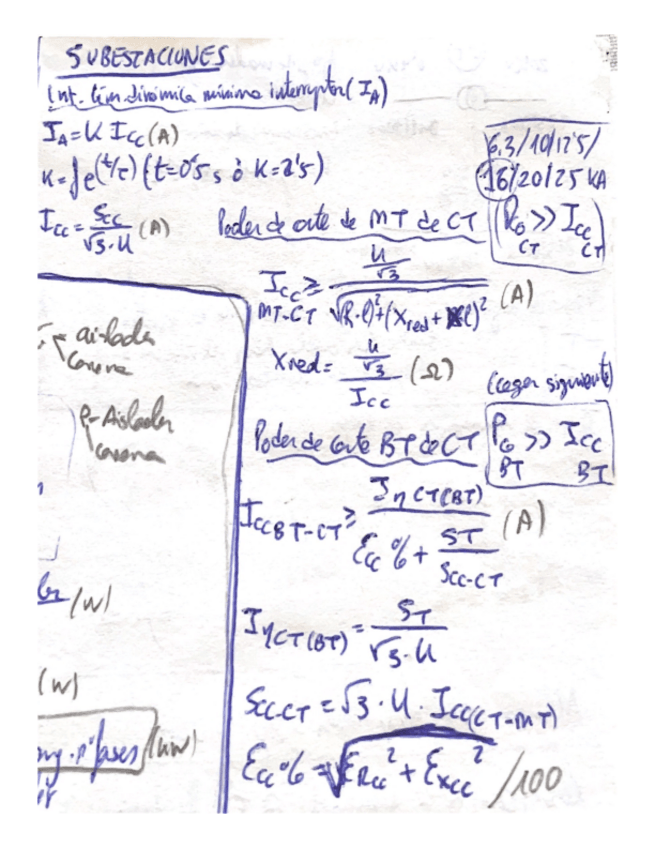 SUBESTACIONES
Int. lim. dinámica mínima interruptor (I_A)
I_A = K I_cc (A)
K = ∫e^(t/τ) (t=0'5 s ó K=2'5)
I_cc = S_cc / √3·U (A)
6,3/10/12'5/
16/20/25 kA
P_co >> I_cc
CT CT
Poder de corte de MT de CT
I_cc MT-CT ≥ (U/√3) / √((R·l)²+(X_red + l)²) (A)
X_red = (U/√3) / I_cc (Ω)
(coger siguiente)
Poder de corte BT de CT
P_co >> I_cc
BT BT
I_ccBT-CT ≥ I_ηCT(BT) / (ε_cc % + S_T/S_cc-CT) (A)
I_ηCT(BT) = S_T / √3·U
S_cc-CT = √3·U·I_cc(CT-MT)
ε_cc % = √(ε_Rcc² + ε_xcc²) /100
aislador
corona
P-Aislador
corona
(W)
(W)
nºfases (kW)